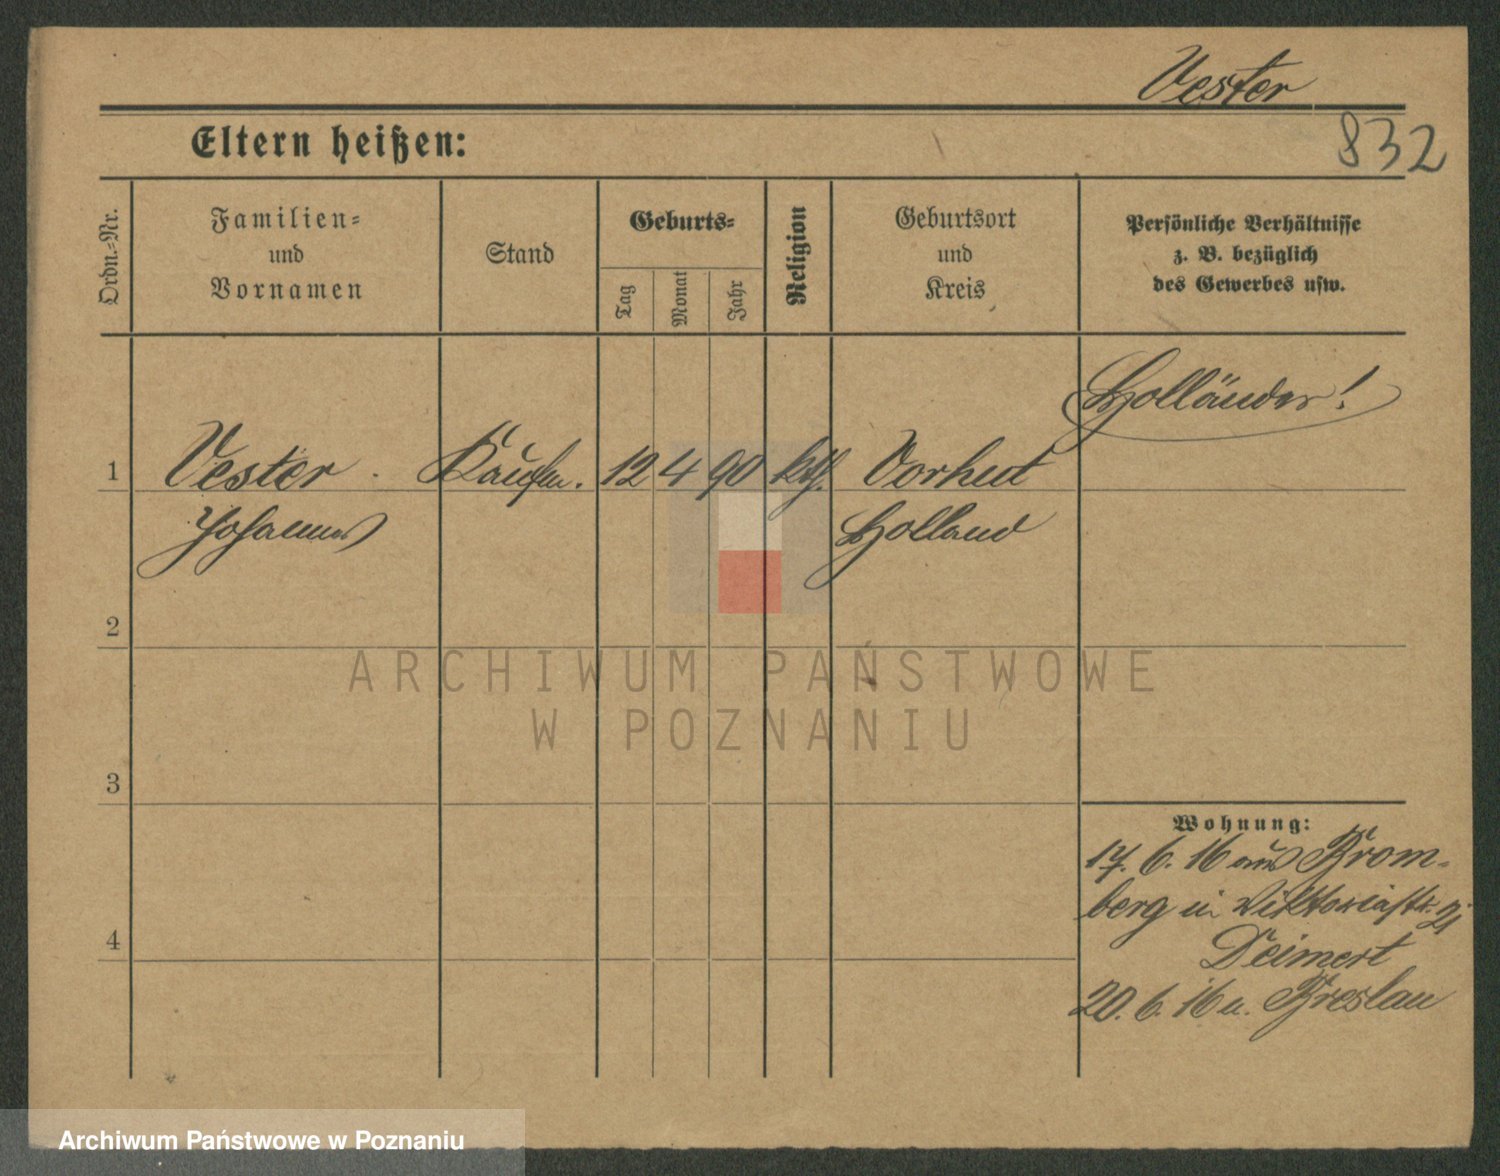 Vester
Eltern heißen:
832
Ordn.-Nr.
Familien-
und
Vornamen
Stand
Geburts-
Tag
Monat
Jahr
Religion
Geburtsort
und
Kreis
Persönliche Verhältnisse
z. B. bezüglich
des Gewerbes usw.
Holländer!
1 Vester Kaufm. 12 4 90 kth. Vorhut
Johannes Holland
2
ARCHIWUM PAŃSTWOWE
W POZNANIU
3
Wohnung:
17. 6. 16 aus Brom-
berg in Viktoriastr. 21
4
Deimert
20. 6. 16 n. Breslau
Archiwum Państwowe w Poznaniu